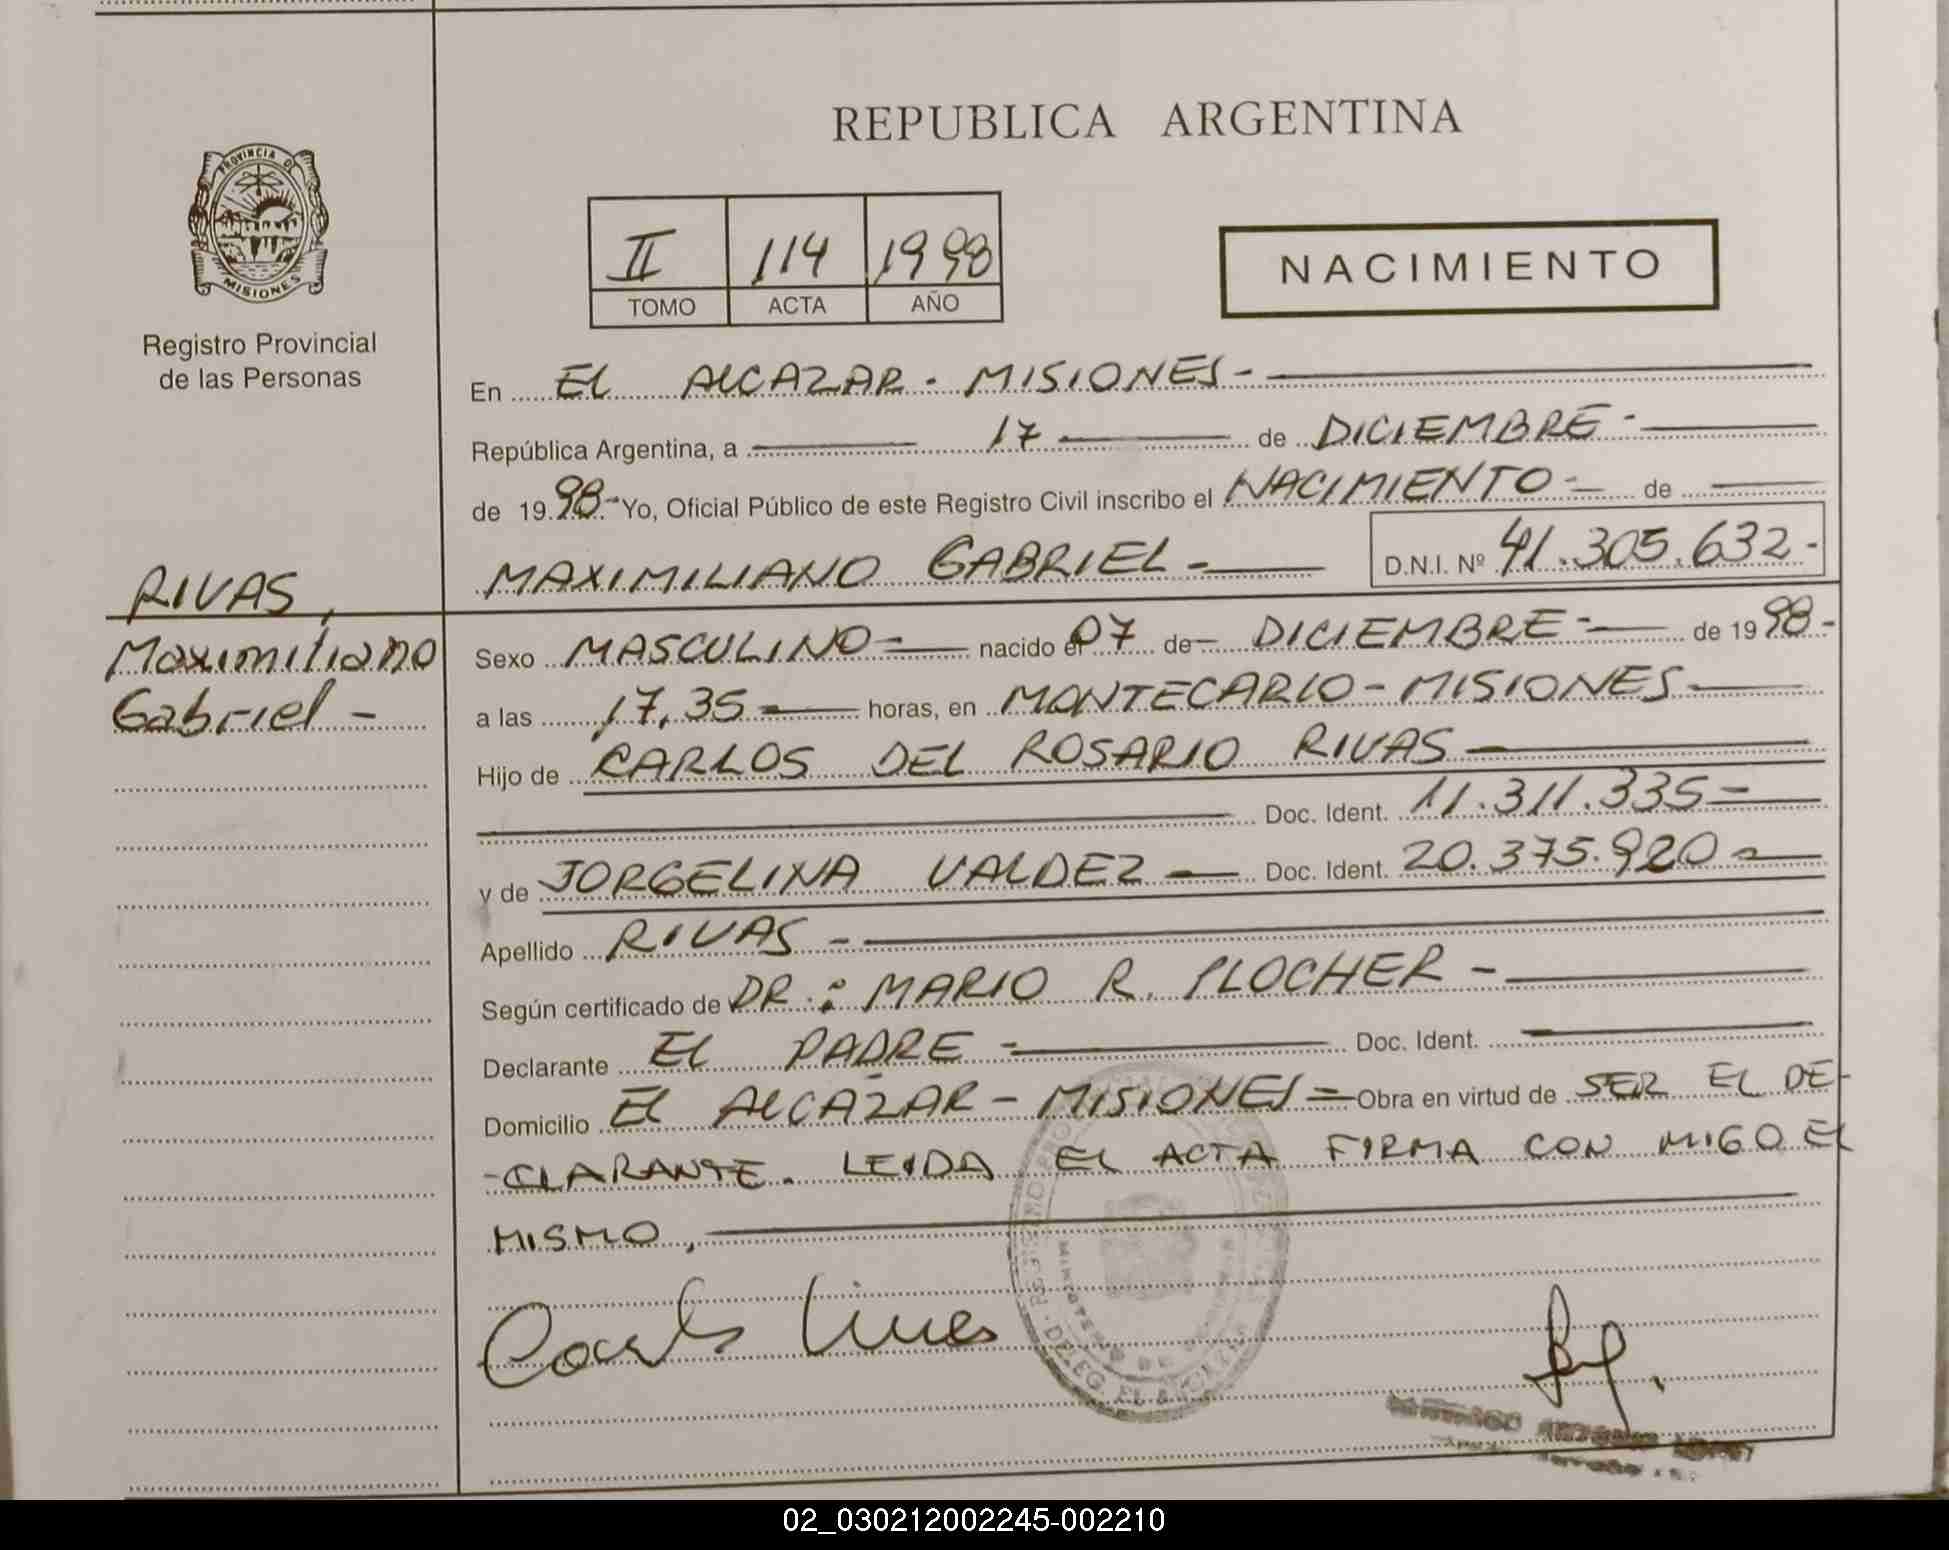 REPUBLICA ARGENTINA
PROVINCIA DE
MISIONES
Registro Provincial
de las Personas
II 114 1998
TOMO ACTA AÑO
NACIMIENTO
En EL ALCAZAR - MISIONES -
República Argentina, a 17 de DICIEMBRE -
de 1998.- Yo, Oficial Público de este Registro Civil inscribo el NACIMIENTO - de
MAXIMILIANO GABRIEL - D.N.I. Nº 41.305.632-
RIVAS,
Maximiliano
Gabriel -
Sexo MASCULINO - nacido el 07 de - DICIEMBRE - de 1998-
a las 17,35 - horas, en MONTECARLO - MISIONES -
Hijo de CARLOS DEL ROSARIO RIVAS -
Doc. Ident. 11.311.335-
y de JORGELINA VALDEZ - Doc. Ident. 20.375.920-
Apellido RIVAS -
Según certificado de DR.: MARIO R. PLOCHER -
Declarante EL PADRE - Doc. Ident.
Domicilio EL ALCAZAR - MISIONES = Obra en virtud de SER EL DE-
-CLARANTE. LEIDA EL ACTA FIRMA CON MIGO EL
MISMO,
DELEG. EL ALCAZAR
02_030212002245-002210